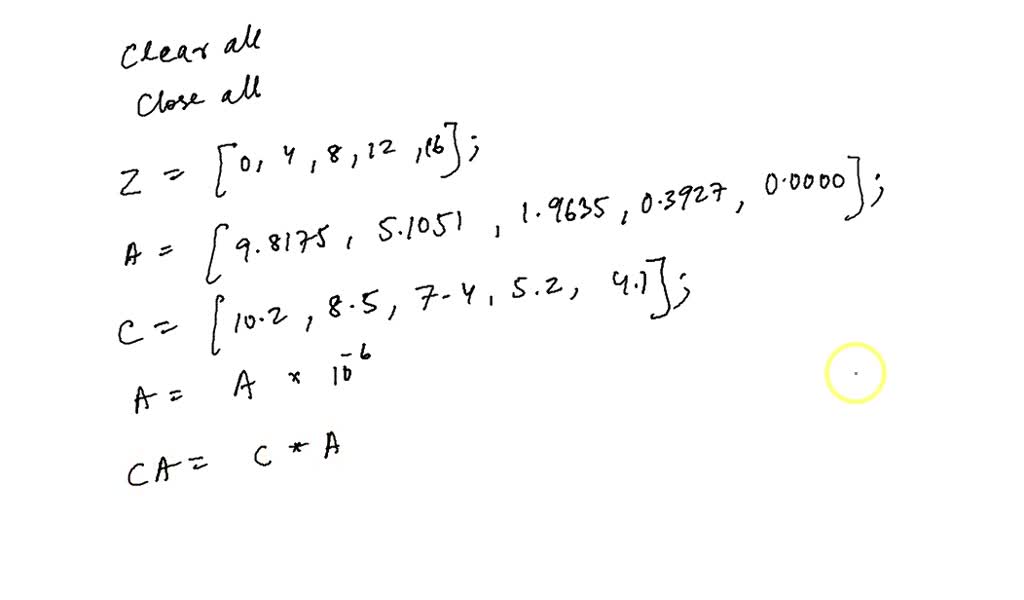 Clear all
Close all
Z = [0, 4, 8, 12, 16];
A = [9.8175, 5.1051, 1.9635, 0.3927, 0.0000];
C = [10.2, 8.5, 7.4, 5.2, 4.1];
A = A * 10^-6
CA = C * A